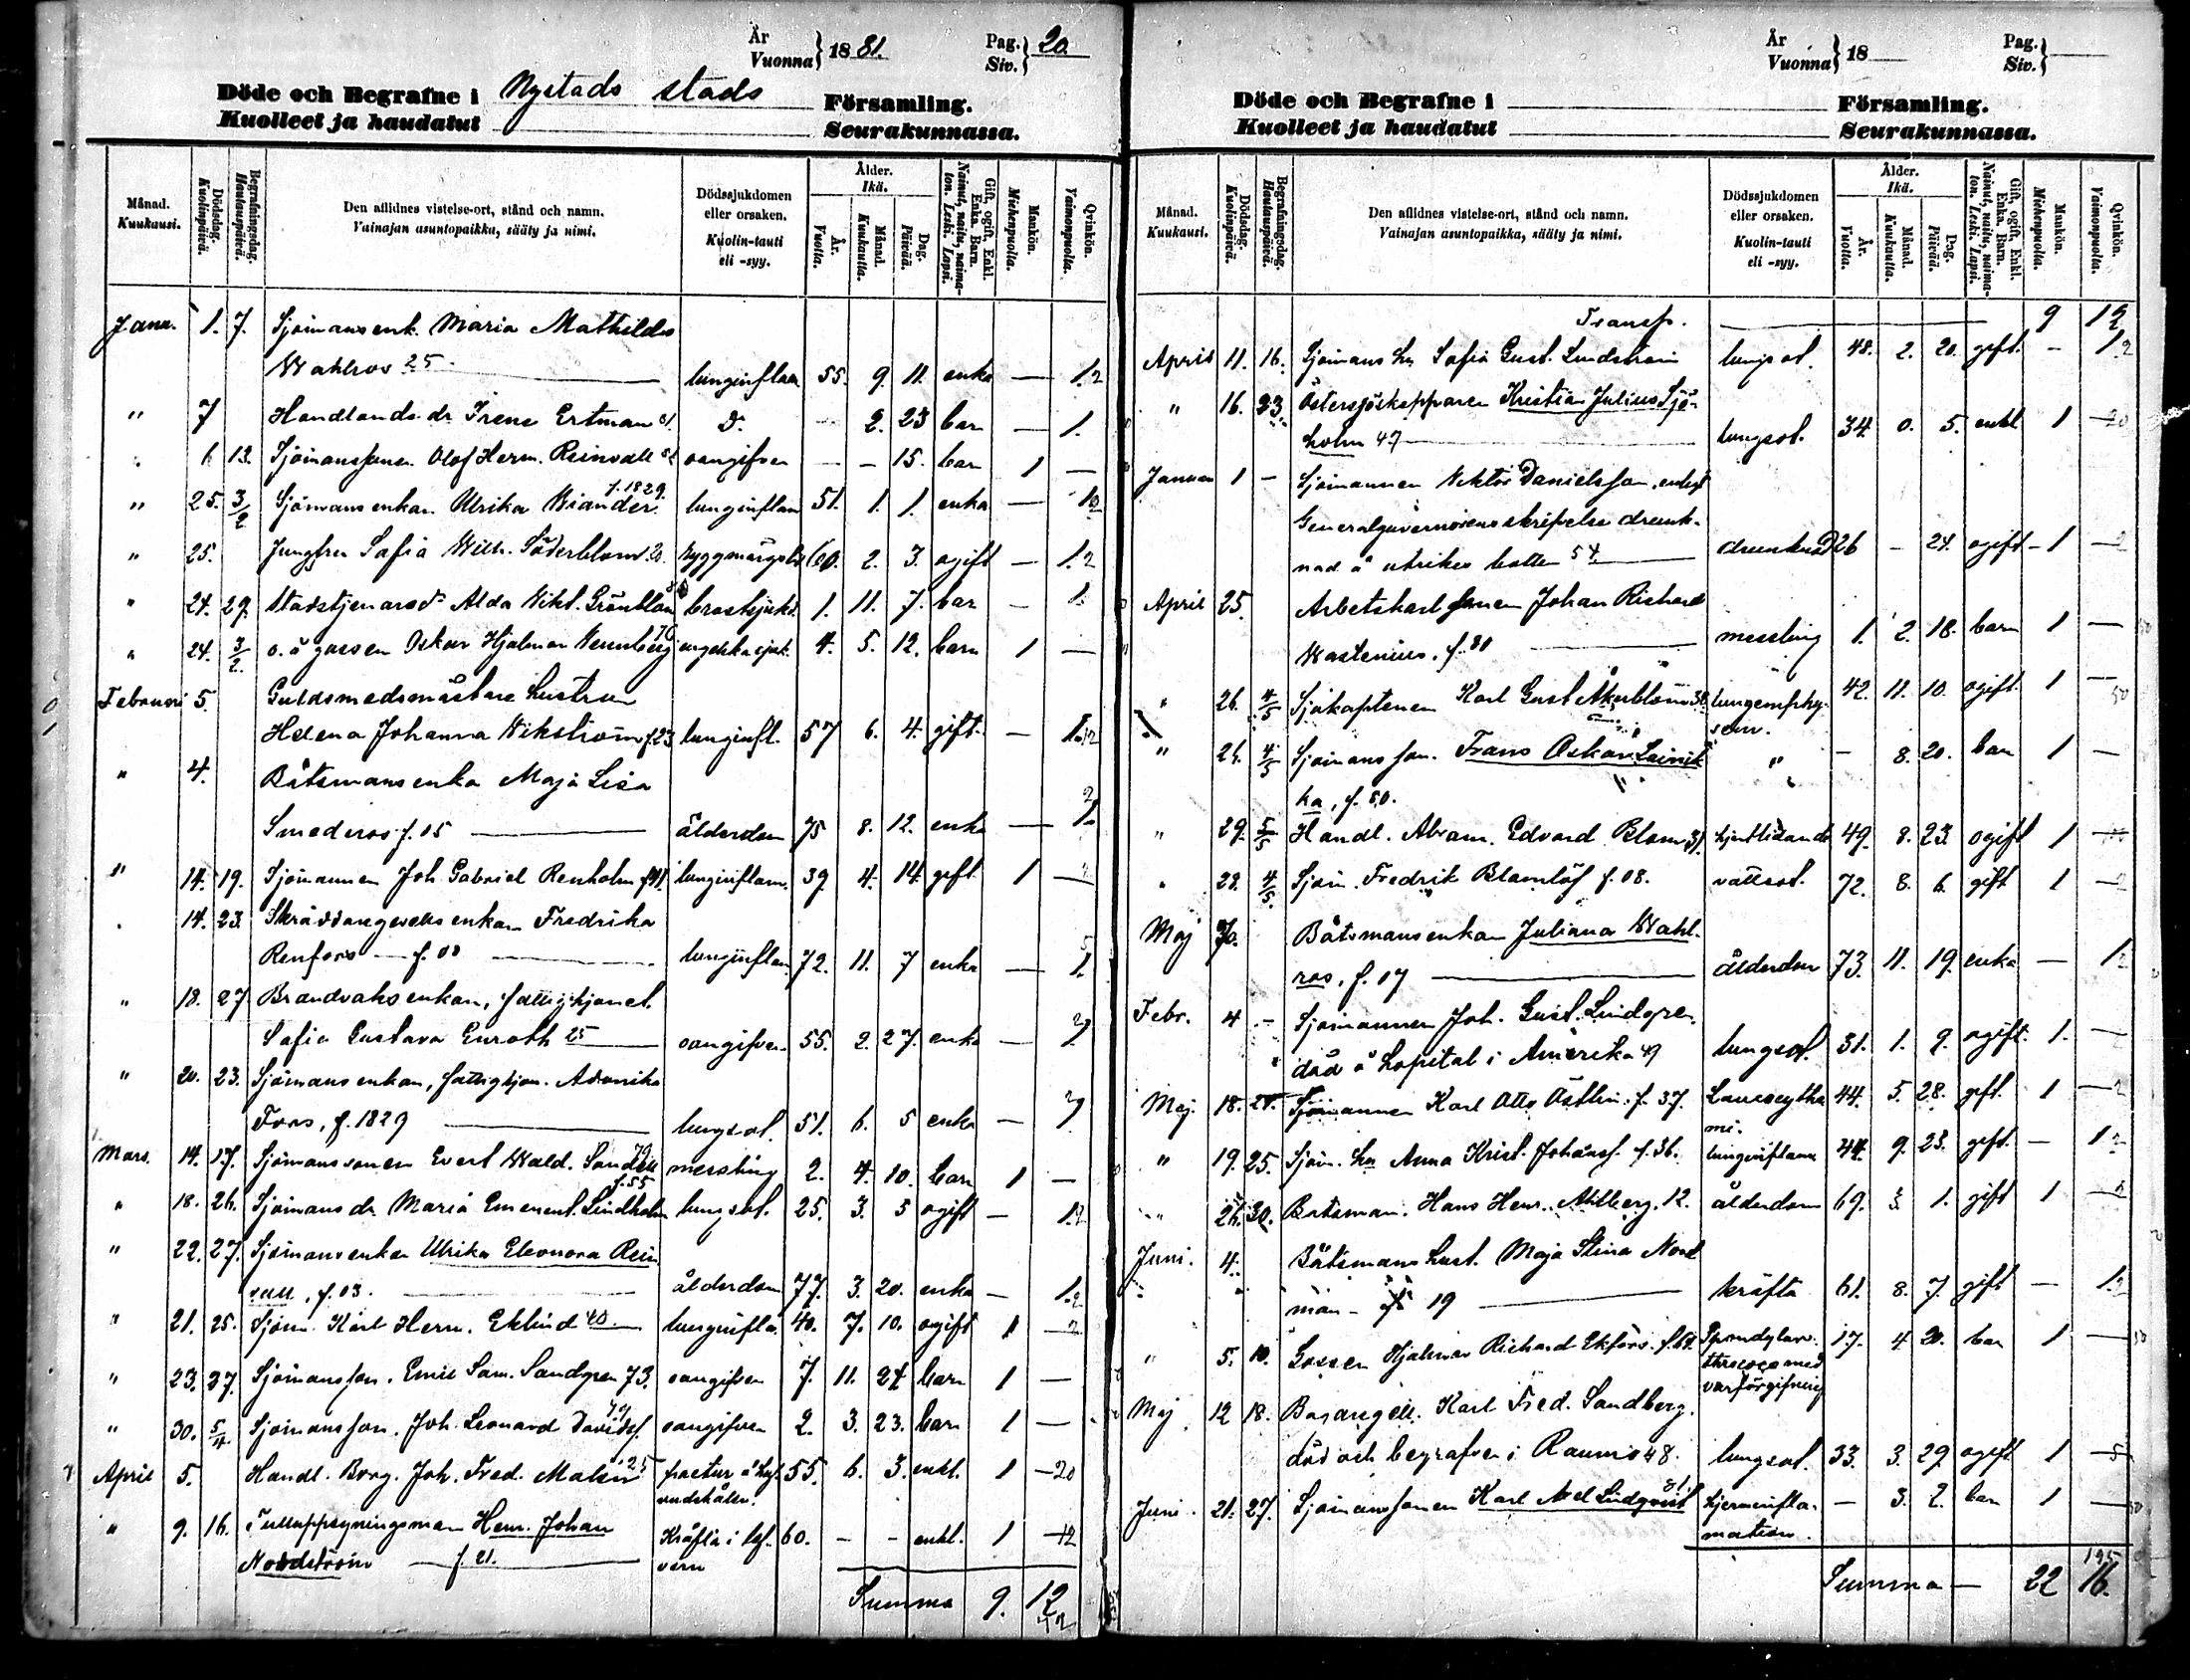 År
Vuonna } 1881.
Pag.
Siv. } 20
Döde och Begrafne i Nystads stads Församling.
Kuolleet ja haudatut Seurakunnassa.
Månad. Kuukausi.
Dödsdag. Kuolinpäivä.
Begrafningsdag. Hautauspäivä.
Den aflidnes vistelse-ort, stånd och namn.
Vainajan asuntopaikka, sääty ja nimi.
Dödssjukdomen eller orsaken.
Kuolin-tauti eli -syy.
Ålder. Ikä.
År. Vuotta.
Månad. Kuukautta.
Dag. Päivää.
Gift, ogift, Enkl. Enka. Barn.
Nainut, naitu, naimaton. Leski. Lapsi.
Mankön. Miehenpuolta.
Qvinkön. Vaimonpuolta.
Janu. 1. 7. Sjömansenk. Maria Mathilda
Wahlros 25 lunginflam 55. 9. 11. enka — 1.
" 7 Handlands dr Irene Ertman 81. D. — 2. 23 barn — 1.
6 13. Sjömanssonen Olof Herm. Reinvall oangifven — — 15. barn 1 —
" 25. 3/2 Sjömansenkan Ulrika Wiander f. 1829. lunginflam 51. 1. 1. enka — 1
" 25. Jungfru Sofia Wilh. Söderblom 20. ryggmärgsl 60. 2. 3. ogift — 1.
" 24. 29. Stadstjenared. Alda Wikt. Grönblom bröstsjukd. 1. 11. 7. barn — 1.
" 24. 3/2. o. ä. gossen Oskar Hjalmar Wennberg 76 engelska sjuk. 4. 5. 12. barn 1 —
Februari 5. Guldsmedsmästare hustrun
Helena Johanna Wikström f. 23 lunginfl. 57 6. 4. gift. — 1.
" 4. Båtsmansenka Maja Lisa
Smederos f. 05 ålderdom 75 8. 12. enka — 1.
" 14. 19. Sjömannen Joh. Gabriel Renholm f. 41 lunginflam. 39 4. 14. gift 1 —
14. 23. Skräddaregesällsenkan Fredrika
Renfors f. 08 lunginflam 72. 11. 7 enka — 1.
" 18. 27 Brandvaktsenkan, fattighjonet
Sofia Gustava Enroth 25 oangifven 55. 2. 27. enka — 1
" 20. 23. Sjömansenkan, fattighjon. Adonika
Fors, f. 1829 lungsot. 51. 6. 5 enka — 1
Mars. 14. 17. Sjömanssonen Evert Wald. Sandell 79 messling 2. 4. 10. barn 1 —
" 18. 26. Sjömans dr. Maria Emerent. Lindholm f. 55 lungsot. 25. 3. 5 ogift — 1.
" 22. 27. Sjömansenkan Ulrika Eleonora Rein
vall, f. 03. ålderdom 77. 3. 20. enka — 1.
" 21. 25. Sjöm. Karl Herm. Eklund 40 lunginfla. 40. 7. 10. ogift 1 —
" 23. 27. Sjömansson. Emil Sam. Sandgren 73. oangifven 7. 11. 24 barn 1 —
" 30. 5/4. Sjömansson. Joh. Leonard Davidsf. oangifven 2. 3. 23. barn 1 —
April 5. Handl. Borg. Joh. Fred. Malin 25 fractur å 55. 6. 3. enkl. 1 —
" 9. 16. Tulluppsyningsman Henr. Johan Kräfta i lef- 60. — — enkl. 1 —
Nordström f. 21. vern
Summa 9. 12
År
Vuonna } 18
Pag.
Siv. }
Döde och Begrafne i Församling.
Kuolleet ja haudatut Seurakunnassa.
Månad. Kuukausi.
Dödsdag. Kuolinpäivä.
Begrafningsdag. Hautauspäivä.
Den aflidnes vistelse-ort, stånd och namn.
Vainajan asuntopaikka, sääty ja nimi.
Dödssjukdomen eller orsaken.
Kuolin-tauti eli -syy.
Ålder. Ikä.
År. Vuotta.
Månad. Kuukautta.
Dag. Päivää.
Gift, ogift, Enkl. Enka. Barn.
Nainut, naitu, naimaton. Leski. Lapsi.
Mankön. Miehenpuolta.
Qvinkön. Vaimonpuolta.
Transp. 9 12
April 11. 16. Sjömans hu. Sofia Gust. Lindström lungsot. 48. 2. 20. gift. — 1
" 16. 23. Östersjöskepparen Kristian Julius Sjö-
holm 47 lungsot. 34. 0. 5. enkl 1
Januari 1 — Sjömannen Viktor Danielsson, enligt
Generalguvernörens skrifvelse drunk-
nad å utrikes botten 54 drunknad 26 — 24. ogift — 1
April 25. Arbetskarlssonen Johan Richard
Wastenius. f. 80 messling 1. 2. 18. barn 1 —
" 26. 4/5 Sjökaptenen Karl Gust. Åkerblom 38. lungemphy- 42. 11. 10. ogift. 1 —
sem.
" 26. 4/5 Sjömansson. Frans Oskar Lainik " — 8. 20. barn 1 —
ka, f. 80.
" 29. 5/5 Handl. Abram. Edvard Blom 31. hjertlidande 49. 8. 23. ogift 1 —
" 28. 4/5. Sjöm. Fredrik Blomlöf f. 08. vattsot. 72. 8. 6. gift 1 —
Maj 70. Båtsmansenkan Juliana Wahl-
ros, f. 07 ålderdom 73. 11. 19. enka — 1
Febr. 4 — Sjömannen Joh. Gust. Lindgren
död å hospital i Amerika 49 lungsot. 31. 1. 9. ogift. 1. —
Maj. 18. 21. Sjömannen Karl Otto Östlin f. 37. Leucocythe 44. 5. 28. gift. 1 —
mi.
" 19. 25. Sjöm. hu Anna Krist. Johansf. f. 36. lunginflam 44. 9. 23. gift. — 1
" 26. 30. Båtsman. Hans Henr. Ahlberg. 12. ålderdom 69. 3 1. gift 1 —
Juni. 4. Båtsmans hust. Maja Stina Nord
man — 19 kräfta 61. 8. 7. gift — 1.
" 5. 10. Gossen Hjalmar Richard Ekfors. f. 64. 17. 4 20. barn 1 —
med
varförgiftning
Maj 12 18. Karl Fred. Sandberg.
död och begrafven i Raumo 48. lungsot. 33. 3. 29 ogift 1 —
Juni. 21. 27. Sjömanssonen Karl Axel Lindqvist 81. hjerninfla- — 3. 2. barn 1 —
mation.
Summa — 22 16.